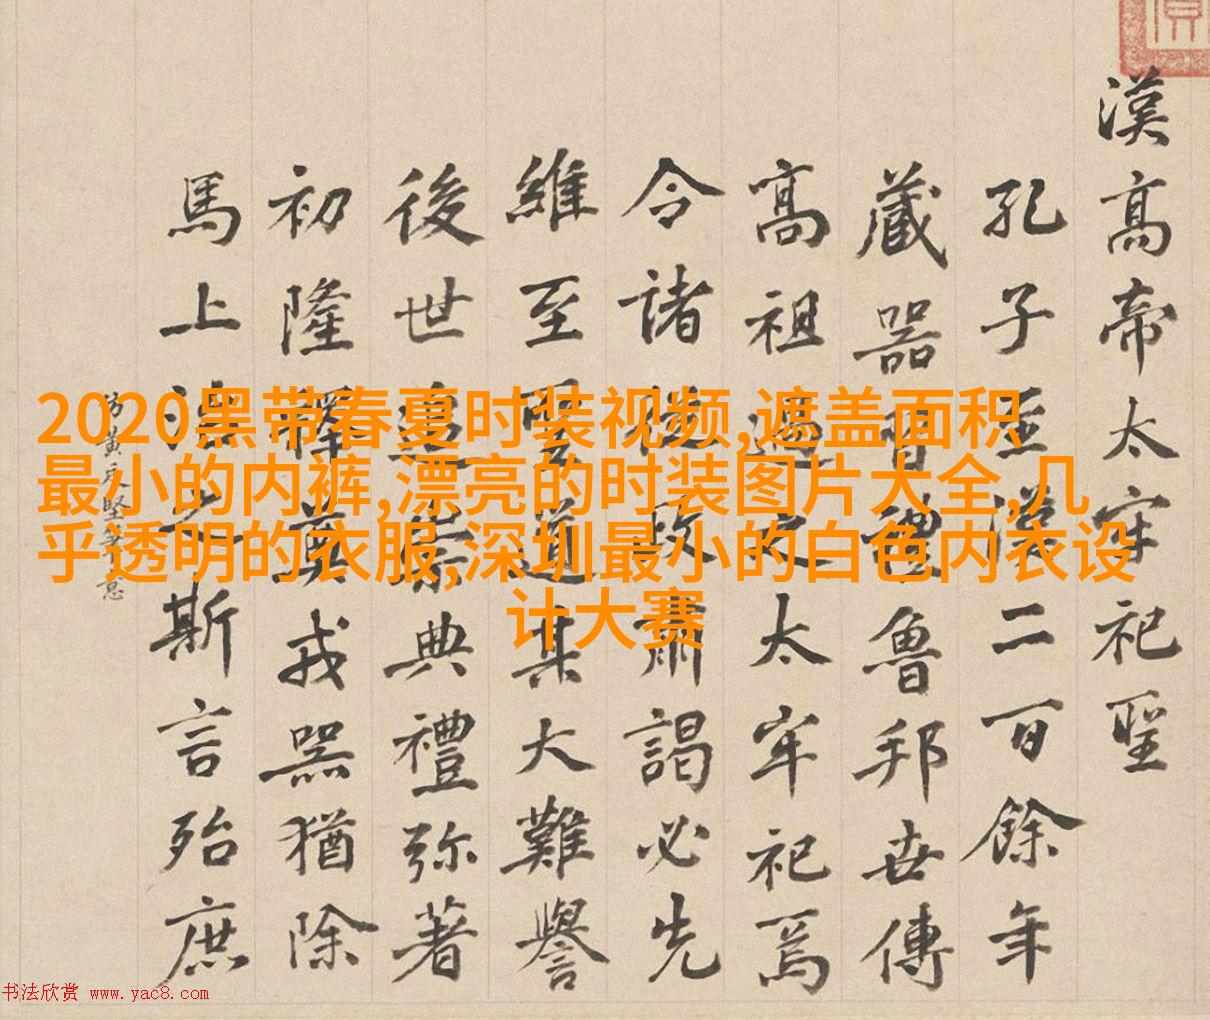 漢高帝太牢祀聖
孔子至漢二百餘年
藏器禮魯邦世傳
高祖過太牢祀焉
令諸肅謁必先
維至道大難譽
後世追崇典禮彌著
初隆釋奠戎器猶除
馬上治之斯言殆庶
2020黑带春夏时装视频,遮盖面积
最小的内裤,漂亮的时装图片大全,几
乎透明的衣服,深圳最小的白色内衣设
计大赛
书法欣赏 www.yac8.com